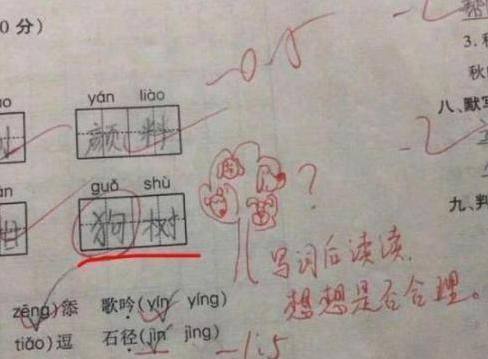 0 分)
-0.5
yán liào
颜料
guǒ shù
狗树
?
写词后读读,
想想是否合理。
zēng)添 歌吟(yín yíng)
tiǎo)逗 石径(jìn jìng)
-1.5
3.
秋
八、默写
九、判